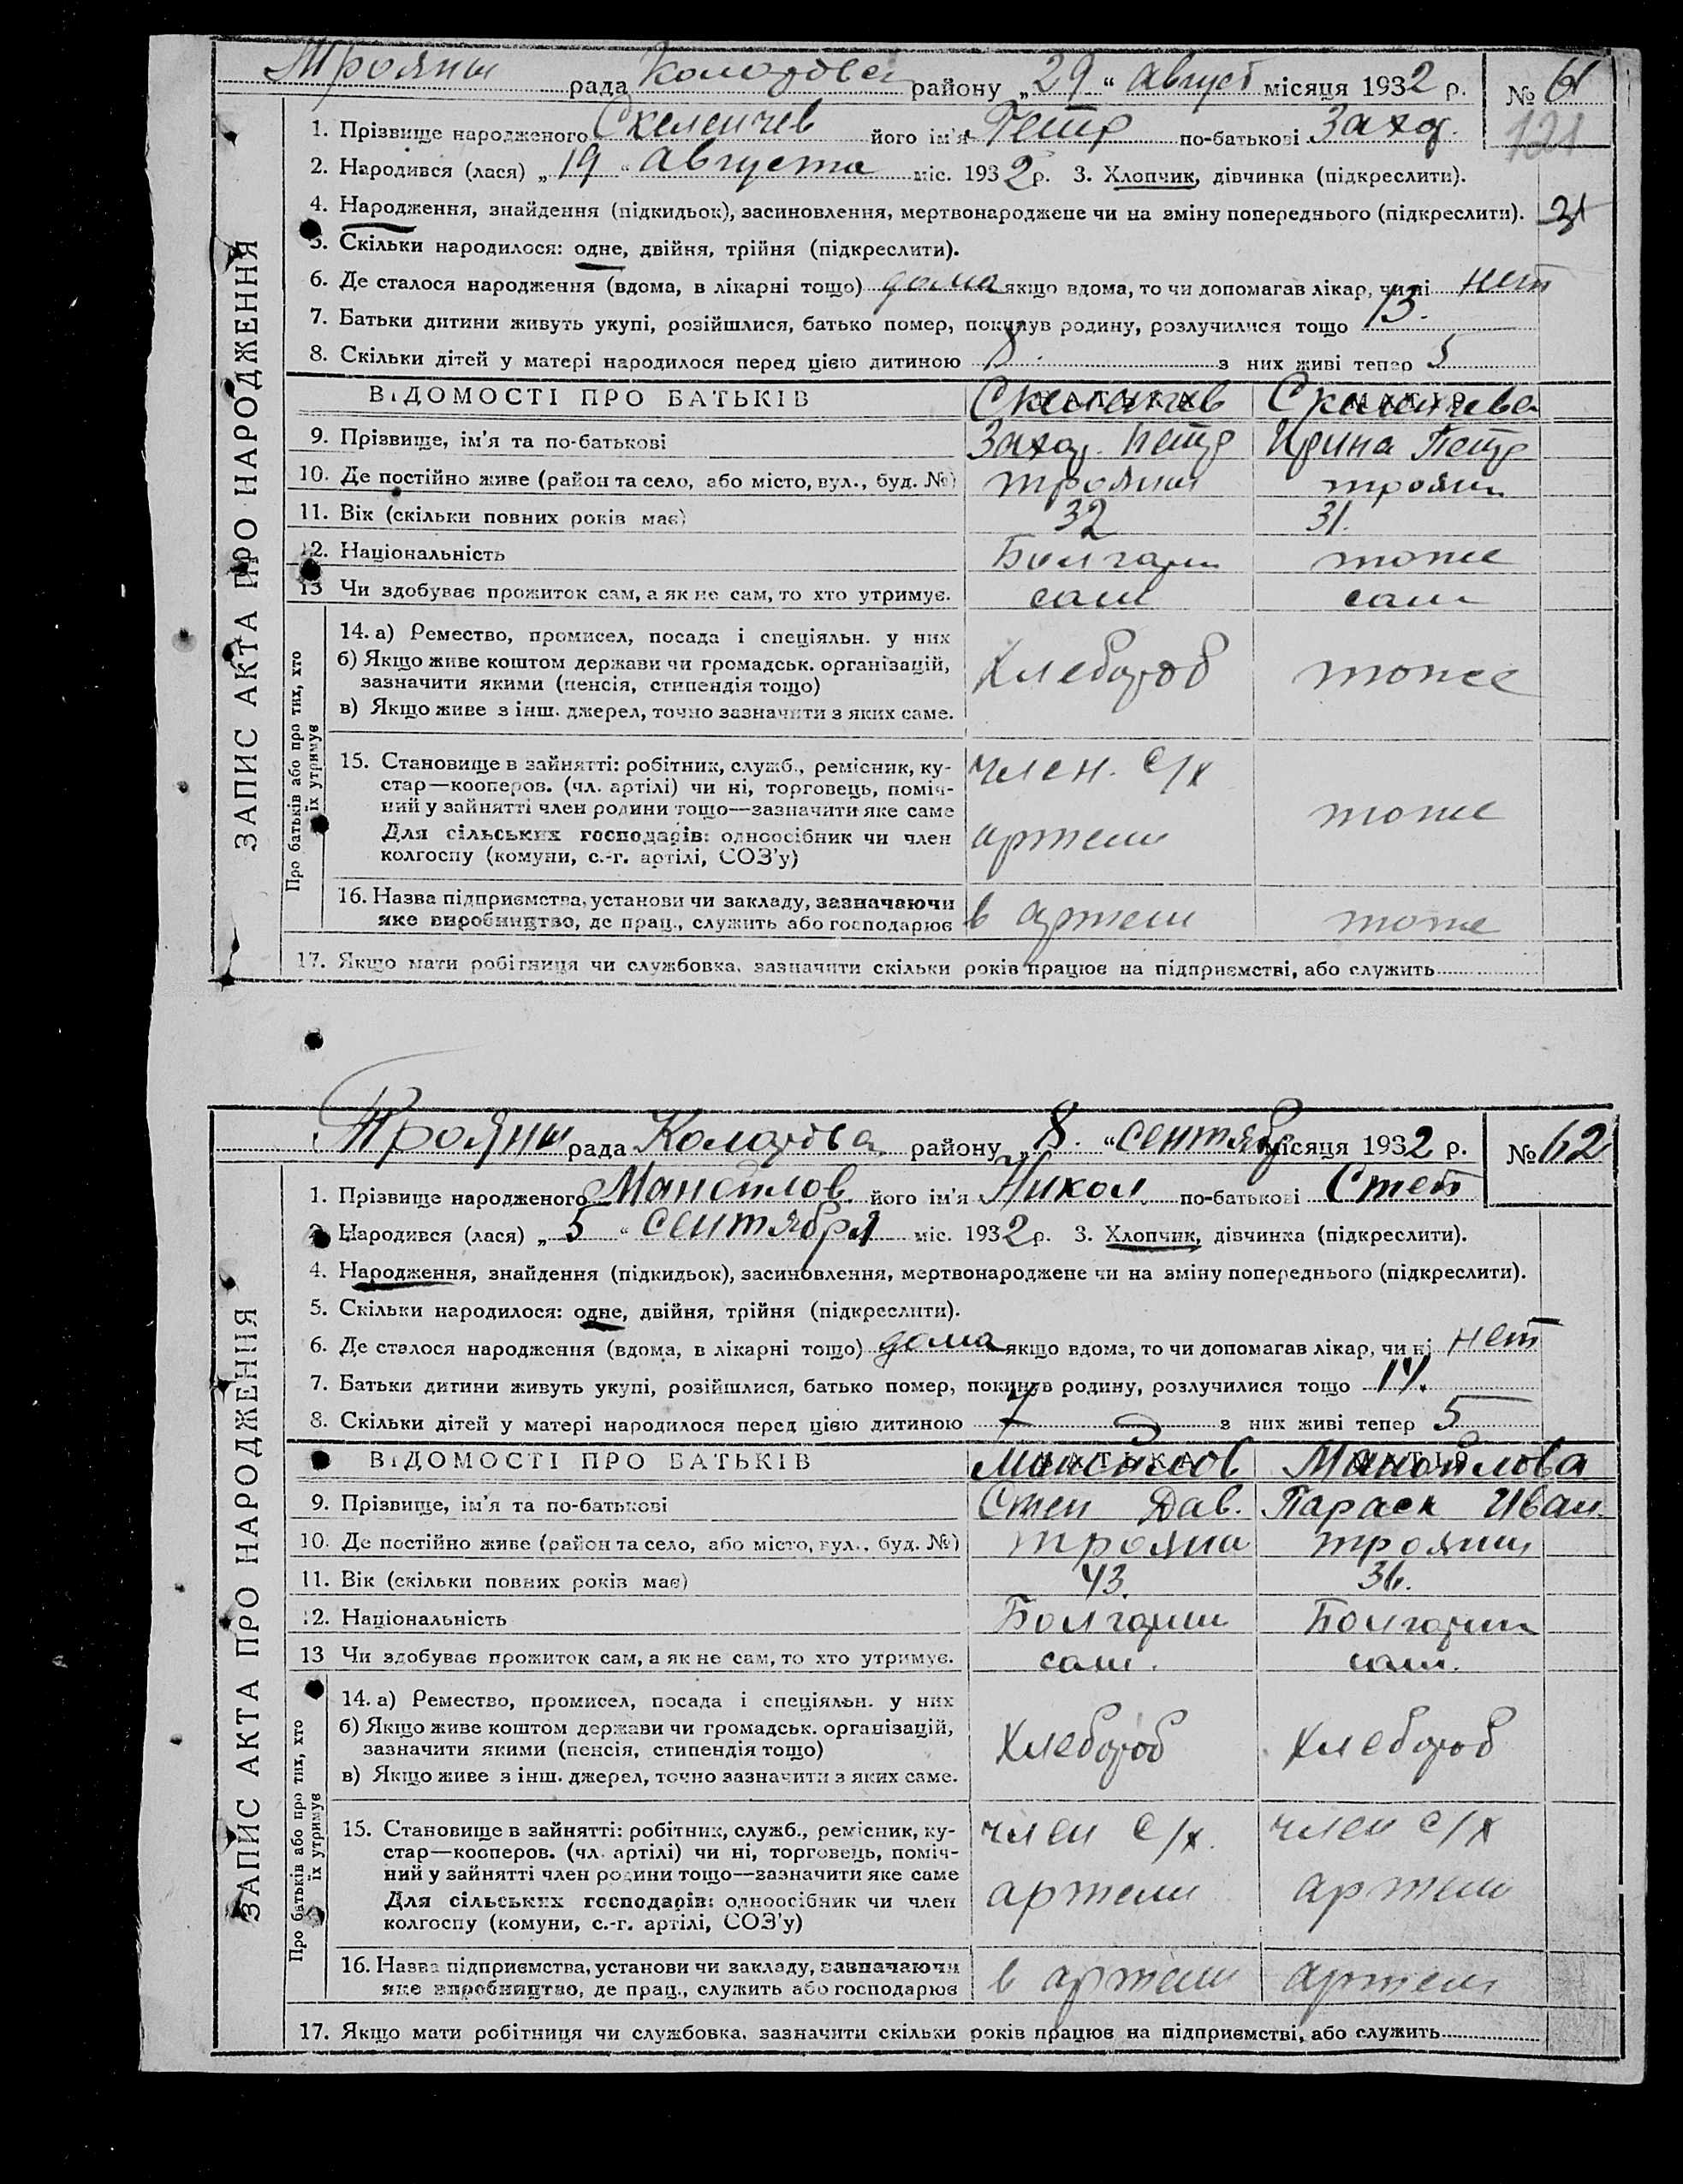 Трояны рада Колар<del></del>овск району „29“ август місяця 1932 р. № 61
121
1. Прізвище народженого Скеленчев його ім'я Петр по-батькові Захар.
2. Народився (лася) „19“ августа міс. 1932 р. 3. Хлопчик, дівчинка (підкреслити).
4. Народження, знайдення (підкидьок), засиновлення, мертвонароджене чи на зміну попереднього (підкреслити). 31
5. Скільки народилося: одне, двійня, трійня (підкреслити).
6. Де сталося народження (вдома, в лікарні тощо) дома якщо вдома, то чи допомагав лікар, чи ні нет
7. Батьки дитини живуть укупі, розійшлися, батько помер, покинув родину, розлучилися тощо 13.
8. Скільки дітей у матері народилося перед цією дитиною 8. з них живі тепер 5
ВІДОМОСТІ ПРО БАТЬКІВ БАТЬКА МАТІР
Скеленчев Скеленчева
9. Прізвище, ім'я та по-батькові Захар. Петр Ирина Петр
10. Де постійно живе (район та село, або місто, вул., буд. №) трояны трояны
11. Вік (скільки повних років має) 32 31.
12. Національність Болгары тоже
13 Чи здобуває прожиток сам, а як не сам, то хто утримує. сам сам
Про батьків або про тих, хто їх утримує
14. а) Ремество, промисел, посада і спеціяльн. у них
б) Якщо живе коштом держави чи громадськ. організацій, хлебороб тоже
зазначити якими (пенсія, стипендія тощо)
в) Якщо живе з інш. джерел, точно зазначити з яких саме.
15. Становище в зайнятті: робітник, служб., ремісник, ку- член. с/х
стар—кооперов. (чл. артілі) чи ні, торговець, поміч-
ний у зайнятті член родини тощо—зазначити яке саме тоже
Для сільських господарів: одноосібник чи член артели
колгоспу (комуни, с.-г. артілі, СОЗ'у)
16. Назва підприємства, установи чи закладу, зазначаючи
яке виробництво, де прац., служить або господарює в артели тоже
17. Якщо мати робітниця чи службовка, зазначити скільки років працює на підприємстві, або служить
ЗАПИС АКТА ПРО НАРОДЖЕННЯ
Трояны рада району „8.“ сентябр місяця 1932 р. № 62
1. Прізвище народженого Манойлов його ім'я Никол. по-батькові Степ
2. Народився (лася) „5“ сентября міс. 1932 р. 3. Хлопчик, дівчинка (підкреслити).
4. Народження, знайдення (підкидьок), засиновлення, мертвонароджене чи на зміну попереднього (підкреслити).
5. Скільки народилося: одне, двійня, трійня (підкреслити).
6. Де сталося народження (вдома, в лікарні тощо) дома якщо вдома, то чи допомагав лікар, чи ні нет
7. Батьки дитини живуть укупі, розійшлися, батько помер, покинув родину, розлучилися тощо 14.
8. Скільки дітей у матері народилося перед цією дитиною 7 з них живі тепер 5
ВІДОМОСТІ ПРО БАТЬКІВ БАТЬКА МАТІР
Манойлов Манойлова
9. Прізвище, ім'я та по-батькові Степ Дав. Параск Иван.
10. Де постійно живе (район та село, або місто, вул., буд. №) трояны трояны
11. Вік (скільки повних років має) 43. 36.
12. Національність Болгары Болгары
13 Чи здобуває прожиток сам, а як не сам, то хто утримує. сам. сам.
Про батьків або про тих, хто їх утримує
14. а) Ремество, промисел, посада і спеціяльн. у них
б) Якщо живе коштом держави чи громадськ. організацій, хлебороб хлебороб
зазначити якими (пенсія, стипендія тощо)
в) Якщо живе з інш. джерел, точно зазначити з яких саме.
15. Становище в зайнятті: робітник, служб., ремісник, ку- член с/х. член с/х
стар—кооперов. (чл. артілі) чи ні, торговець, поміч-
ний у зайнятті член родини тощо—зазначити яке саме
Для сільських господарів: одноосібник чи член артели артели
колгоспу (комуни, с.-г. артілі, СОЗ'у)
16. Назва підприємства, установи чи закладу, зазначаючи
яке виробництво, де прац., служить або господарює в артели артели
17. Якщо мати робітниця чи службовка, зазначити скільки років працює на підприємстві, або служить
ЗАПИС АКТА ПРО НАРОДЖЕННЯ